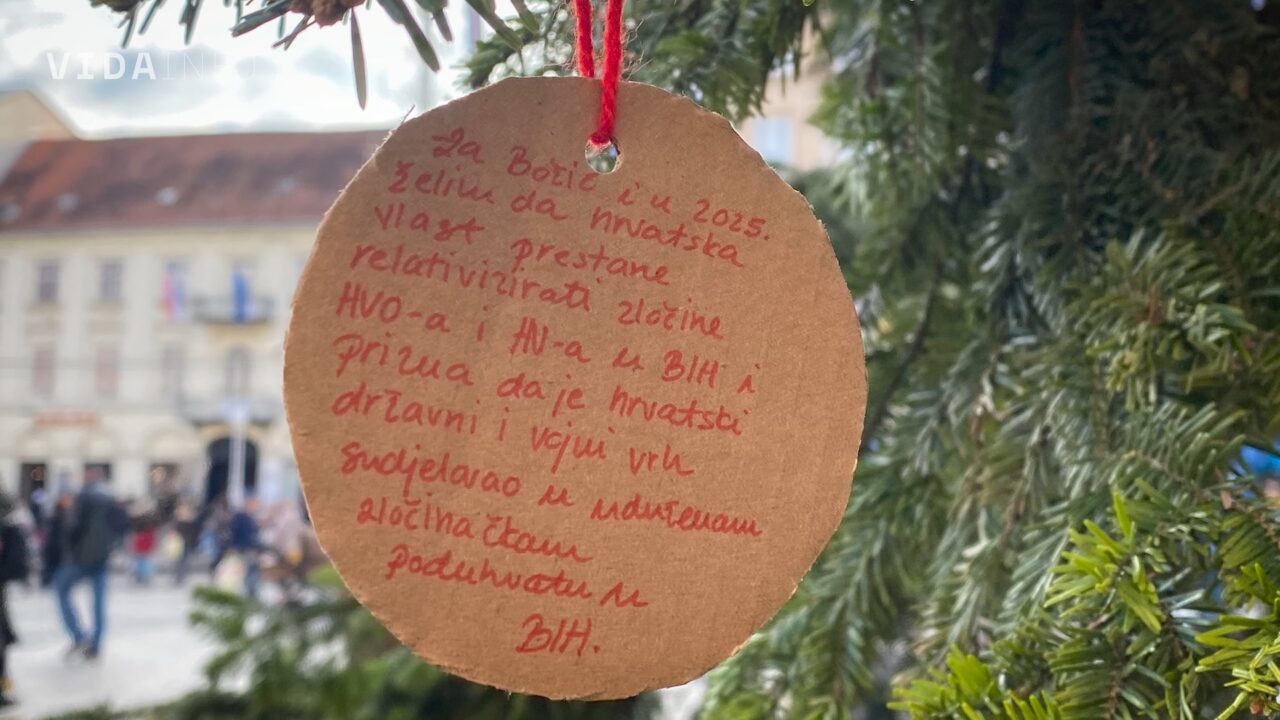 VIDAINFO
Za Božić i u 2025.
želim da hrvatska
vlast prestane
relativizirati zločine
HVO-a i HV-a u BIH i
prizna da je hrvatski
državni i vojni vrh
sudjelovao u udruženom
zločinačkom
poduhvatu u
BIH.